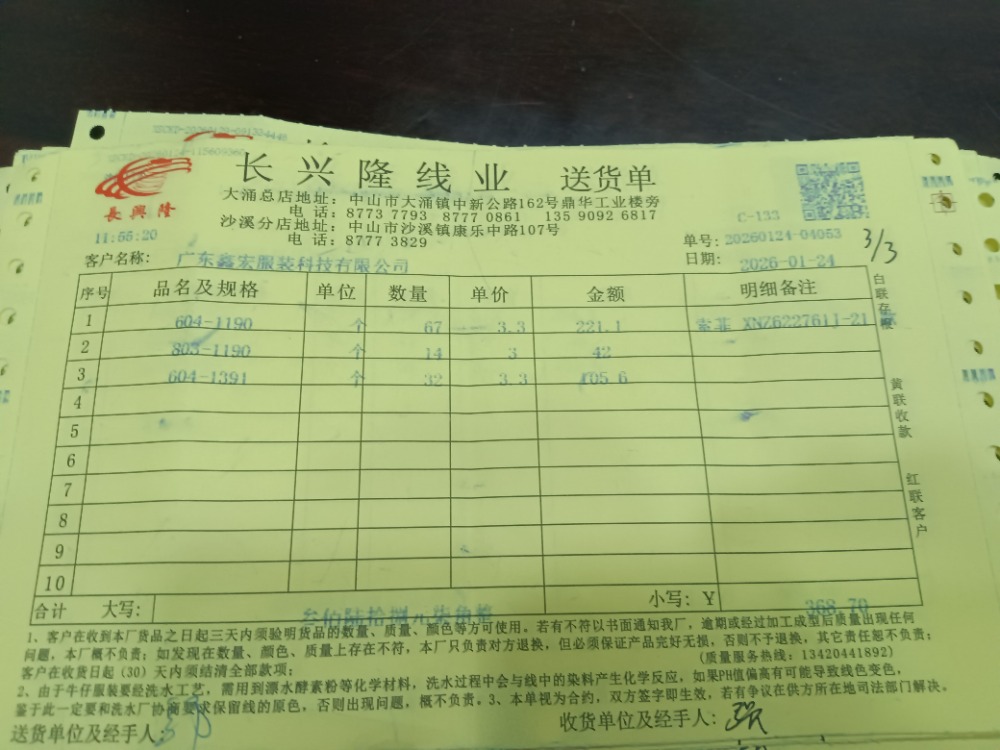 长兴隆线业 送货单
長興隆
大涌总店地址：中山市大涌镇中新公路162号鼎华工业楼旁
电 话：8773 7793 8777 0861 135 9092 6817
沙溪分店地址：中山市沙溪镇康乐中路107号
电 话：8777 3829
C-133
11:55:20
单号：20260124-04053
3/3
客户名称：广东鑫宏服装科技有限公司
日期：2026-01-24
序号 品名及规格 单位 数量 单价 金额 明细备注
1 604-1190 个 67 3.3 221.1 索菲 XNZ622761J-21
2 803-1190 个 14 3 42
3 604-1391 个 32 3.3 105.6
4
5
6
7
8
9
10
合计 大写：叁佰陆拾捌元柒角整 小写：Y 368.70
白联存根
黄联收款
红联客户
1、客户在收到本厂货品之日起三天内须验明货品的数量、质量、颜色等方可使用。若有不符以书面通知我厂，逾期或经过加工成型后质量出现任何
问题，本厂概不负责；如发现在数量、颜色、质量上存在不符，本厂只负责对方退换，但必须保证产品完好无损，否则不予退换，其它责任恕不负责；
客户在收货日起（30）天内须结清全部款项；
（质量服务热线：13420441892）
2、由于牛仔服装要经洗水工艺，需用到漂水酵素粉等化学材料，洗水过程中会与线中的染料产生化学反应，如果PH值偏高有可能导致线色变色，
鉴于此一定要和洗水厂协商要求保留线的原色，否则出现问题，概不负责。3、本单视为合约，双方签字即生效，若有争议在供方所在地司法部门解决。
送货单位及经手人：
收货单位及经手人：